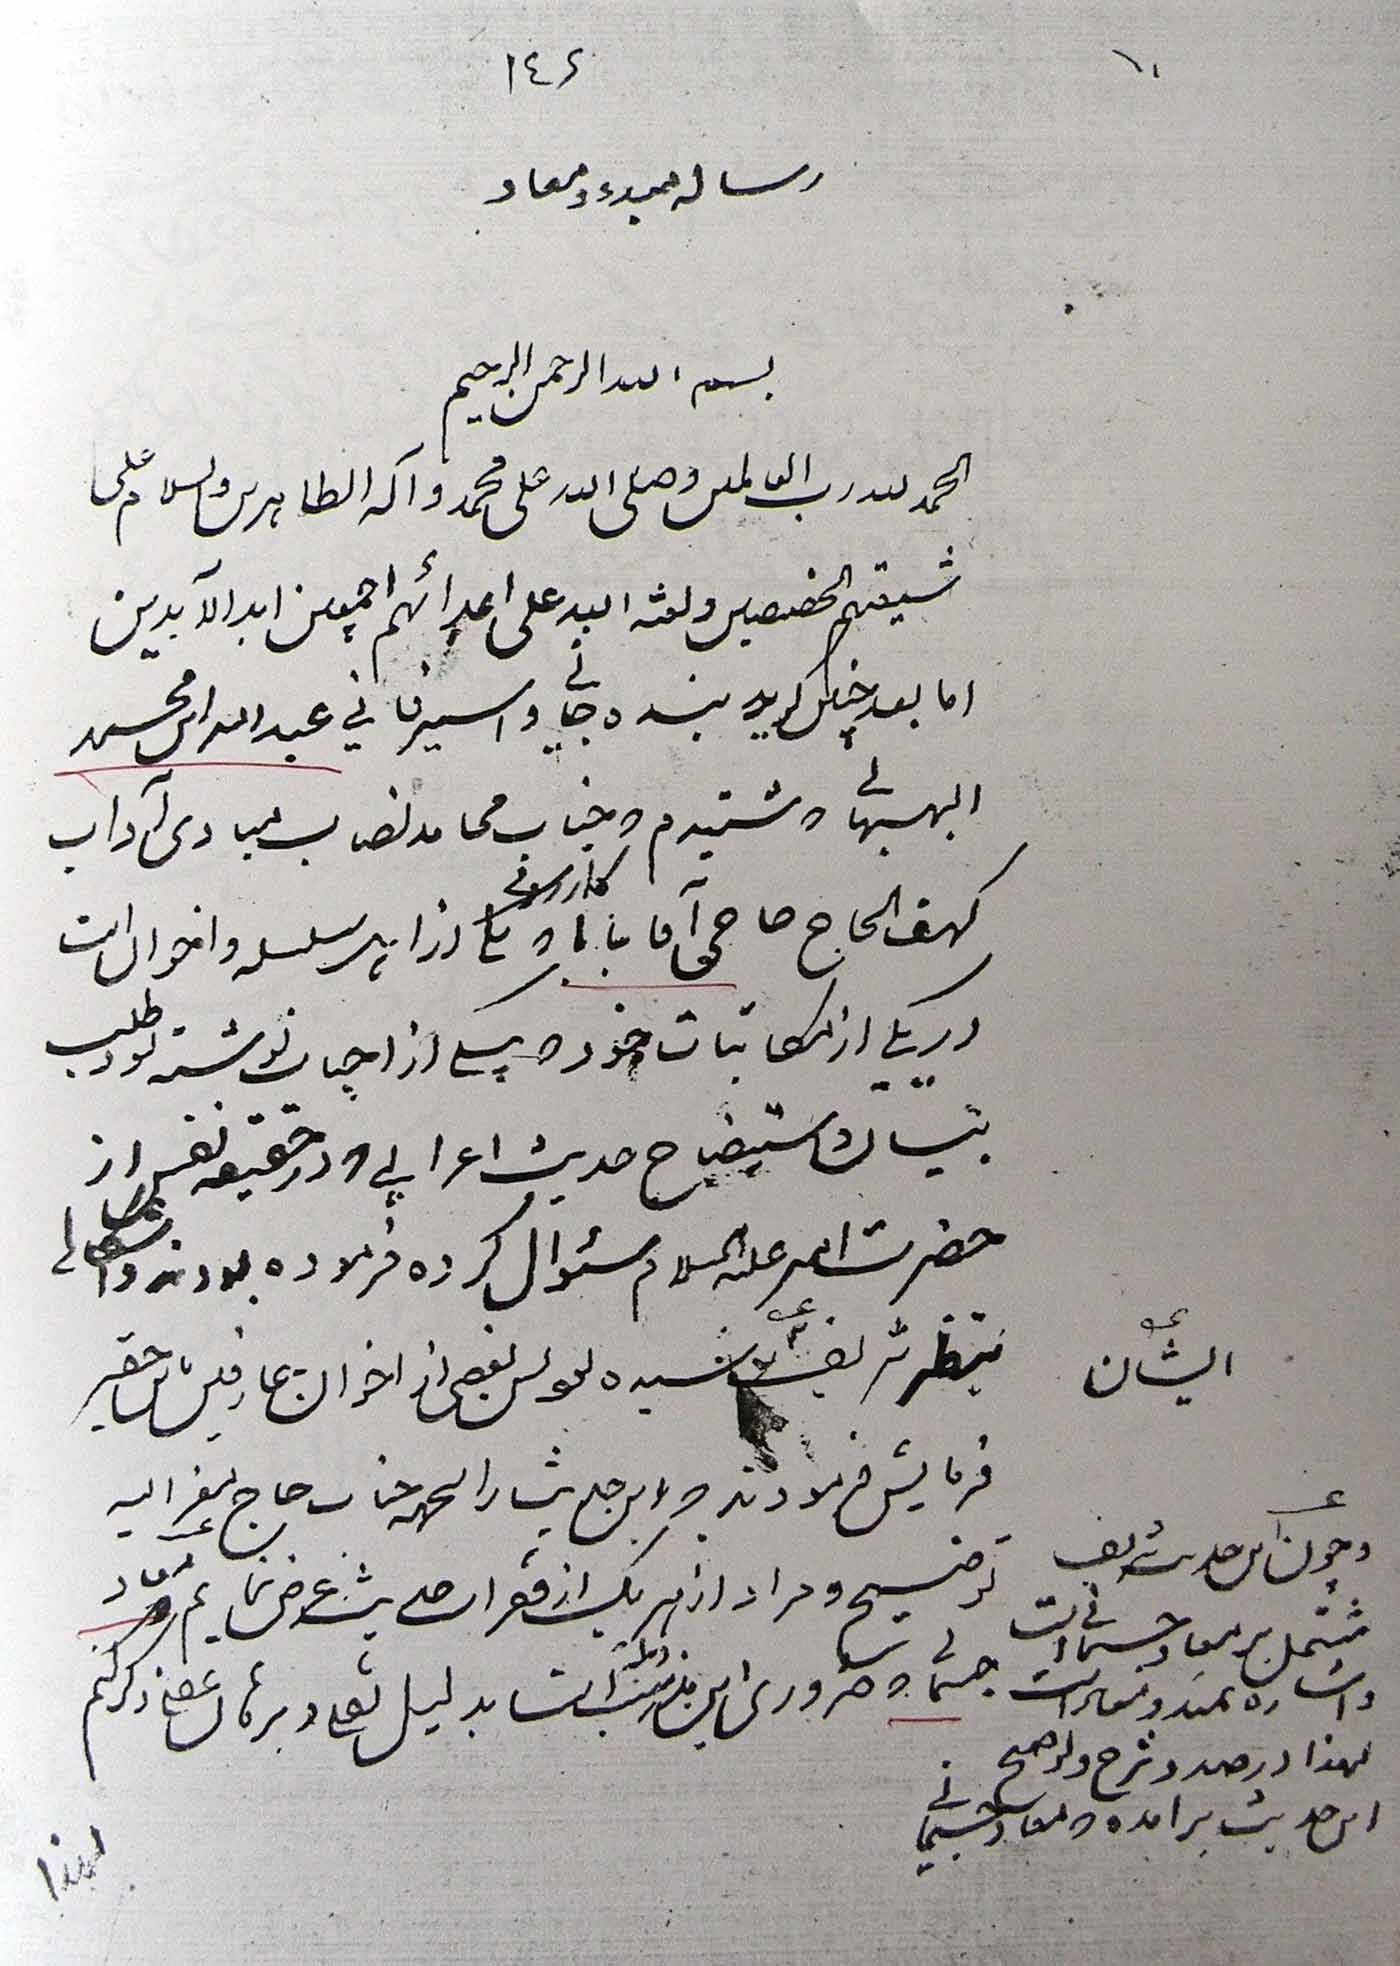 ١٤٦
رساله مبدء و معاد
بسم الله الرحمن الرحیم
الحمد لله رب العالمین و صلی الله علی محمد و آله الطاهرین و السلام علی
شیعتهم المخلصین و لعنه الله علی اعدائهم اجمعین ابد الآبدین
اما بعد چنین گوید بنده جانی و اسیر فانی عبدالله ابن محمد
البهبهانی که شنیدم که جناب محامد نصاب مبادی آداب
کهف الحاج حاجی آقا بابا که یکی از این سلسله و اخوان است
کازرونی
در یکی از مکاتبات خود که بیکی از احباب نوشته بود طلب
بیان و استیضاح حدیث اعرابی که در حقیقه نفس از
حضرت امیر علیه السلام سئوال کرده فرموده بودند و
بنظر شریف رسیده بود پس بعضی از اخوان عارفین باین حقیر
ایشان
فرمایش فرمودند که این حدیث را بجهه جناب حاج
توضیح و مراد از هر یک از فقرات حدیث عرض نمایم و معاد
جسمانی که ضروری این مذهب است بدلیل نقلی و برهان عقلی ذکر کنم
و چون این حدیث شریف
مشتمل بر معاد جسمانی است
و اشاره بمبدء و معاد است
لهذا در صدد شرح و توضیح
این حدیث برآمده و معاد جسمانی
لهذا